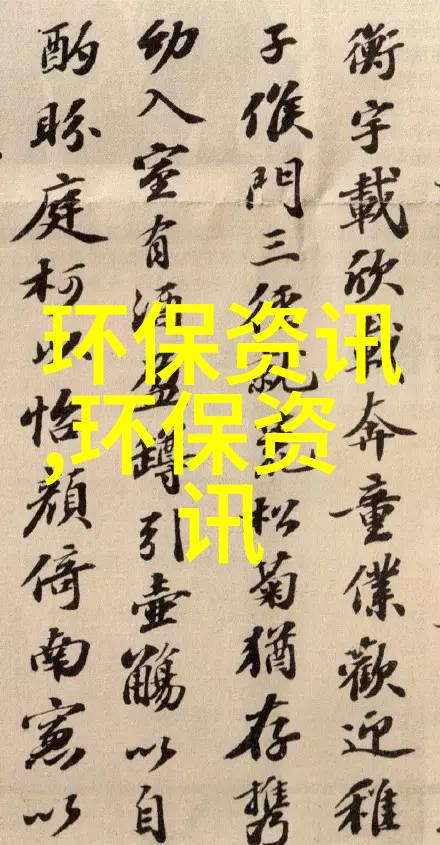 衡宇載欣載奔童僕歡迎稚
子候門三徑就荒松菊猶存携
幼入室有酒盈罇引壺觴以自
酌眄庭柯以怡顔倚南窓以
环保资讯
,环保资
讯